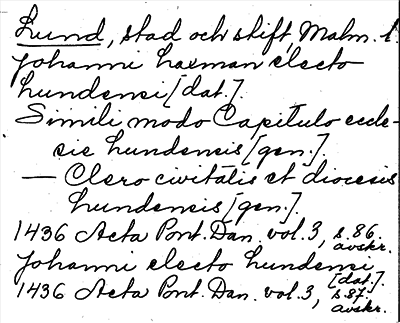 Lund, stad och stift, Malm. l.
Johanni laxman electo
lundensi [dat.].
Simili modo Capitulo eccle-
sie lundensis [gen.].
— Clero civitatis et diocesis
lundensis [gen.].
1436 Acta Pont. Dan. vol. 3, s. 86.
avskr.
Johanni electo lundensi
[dat.].
1436 Acta Pont. Dan. vol. 3, s. 87.
avskr.